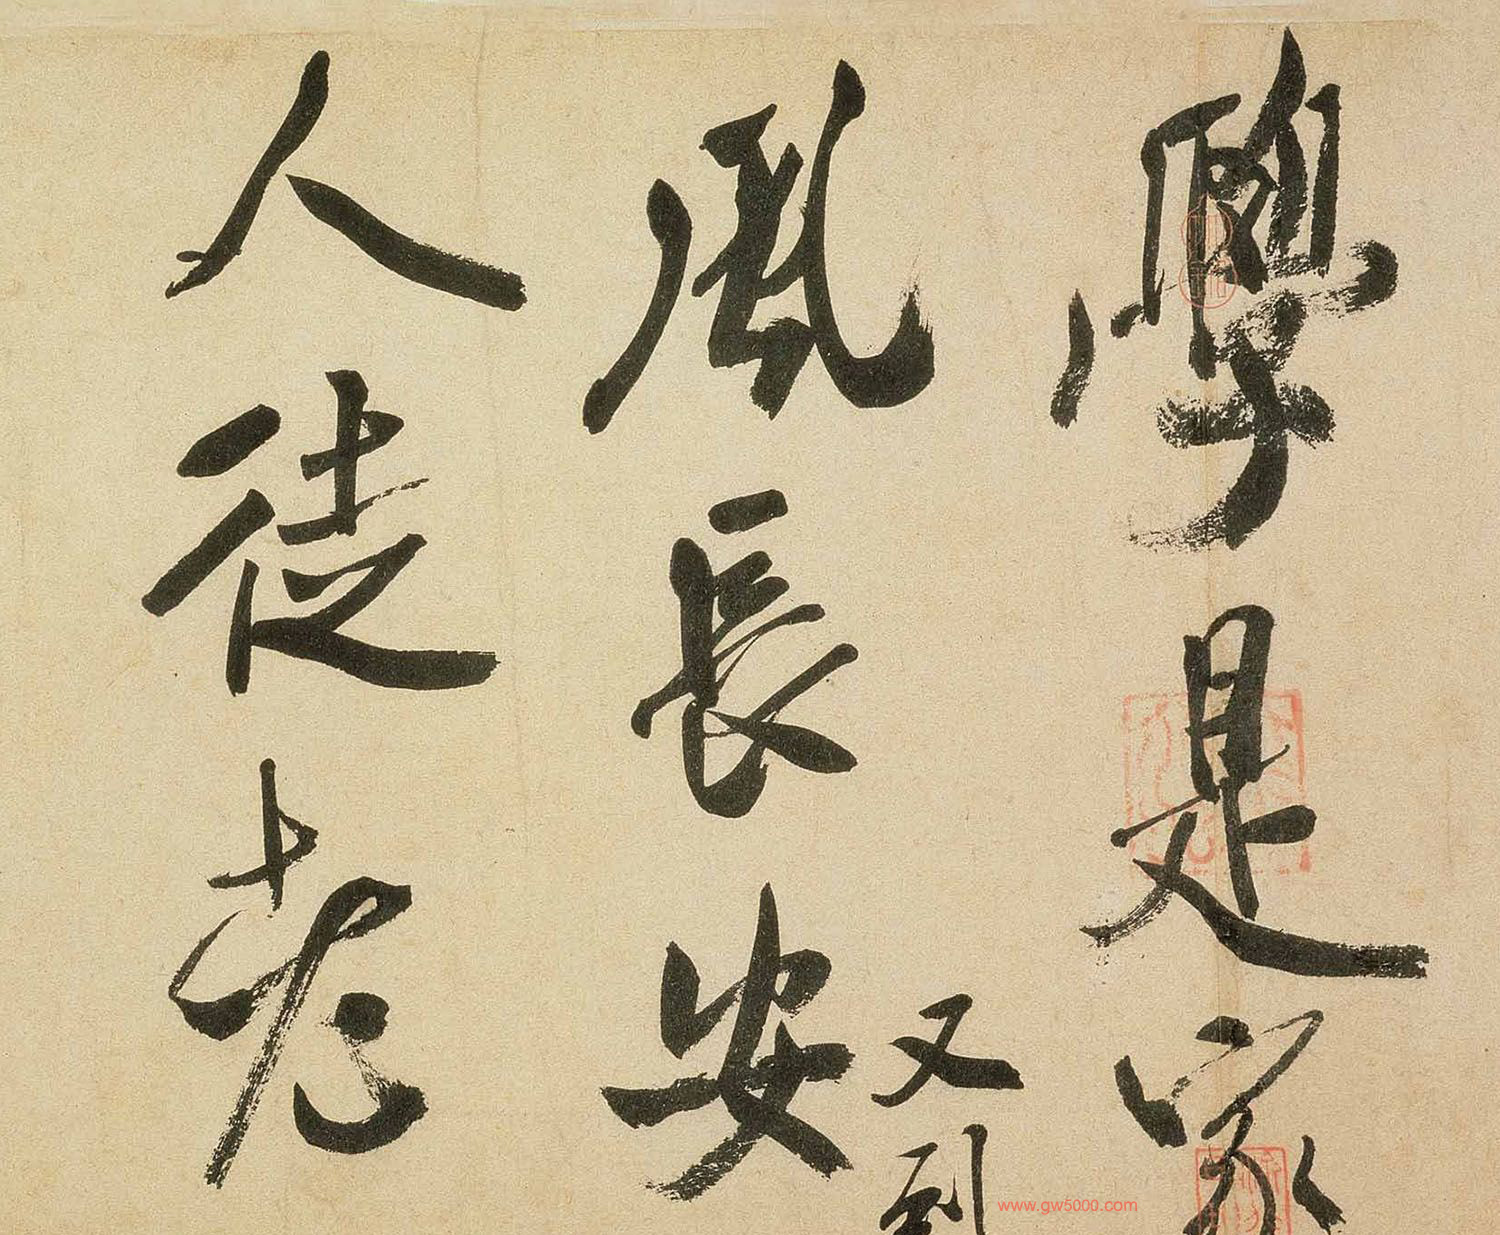 學是家
風長安
又到
人徒老
www.gw5000.com